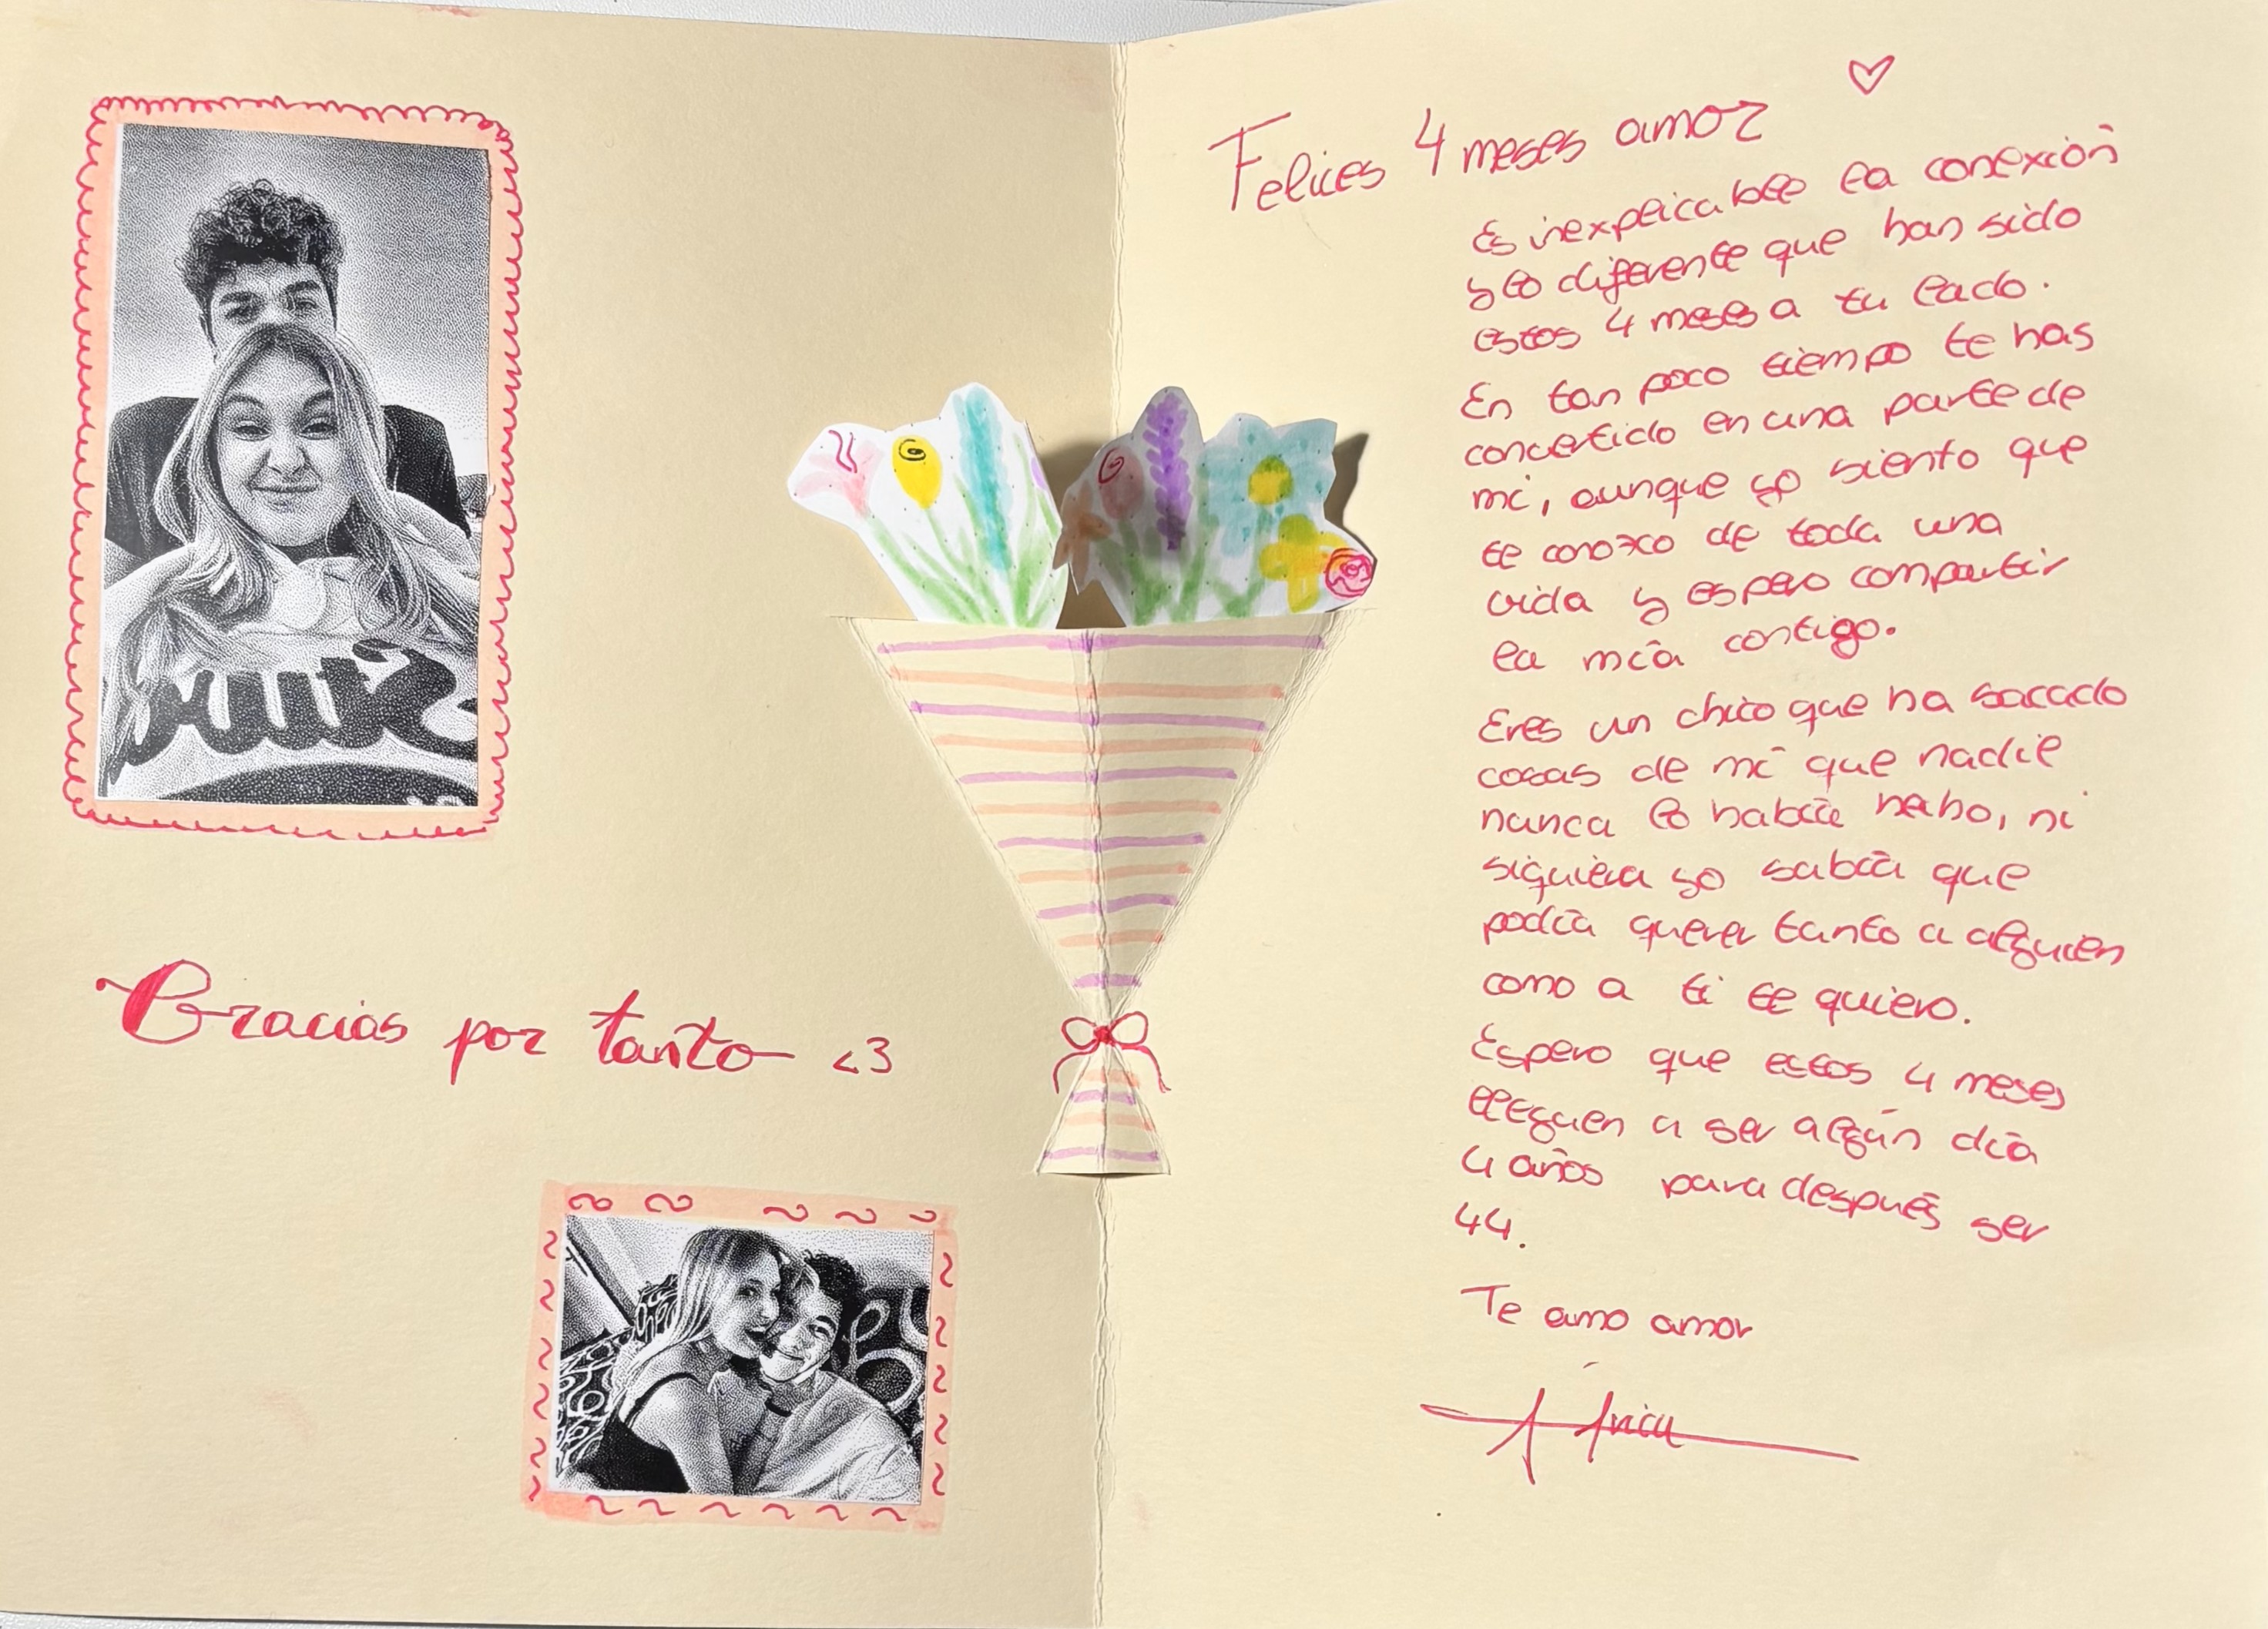 Gracias por tanto <3
Felices 4 meses amor ♡
Es inexplicable la conexión
y lo diferente que han sido
estos 4 meses a tu lado.
En tan poco tiempo te has
convertido en una parte de
mí, aunque yo siento que
te conozco de toda una
vida y espero compartir
la mía contigo.
Eres un chico que ha sacado
cosas de mí que nadie
nunca lo había hecho, ni
siquiera yo sabía que
podía querer tanto a alguien
como a ti te quiero.
Espero que estos 4 meses
lleguen a ser algún día
4 años para después ser
44.
Te amo amor